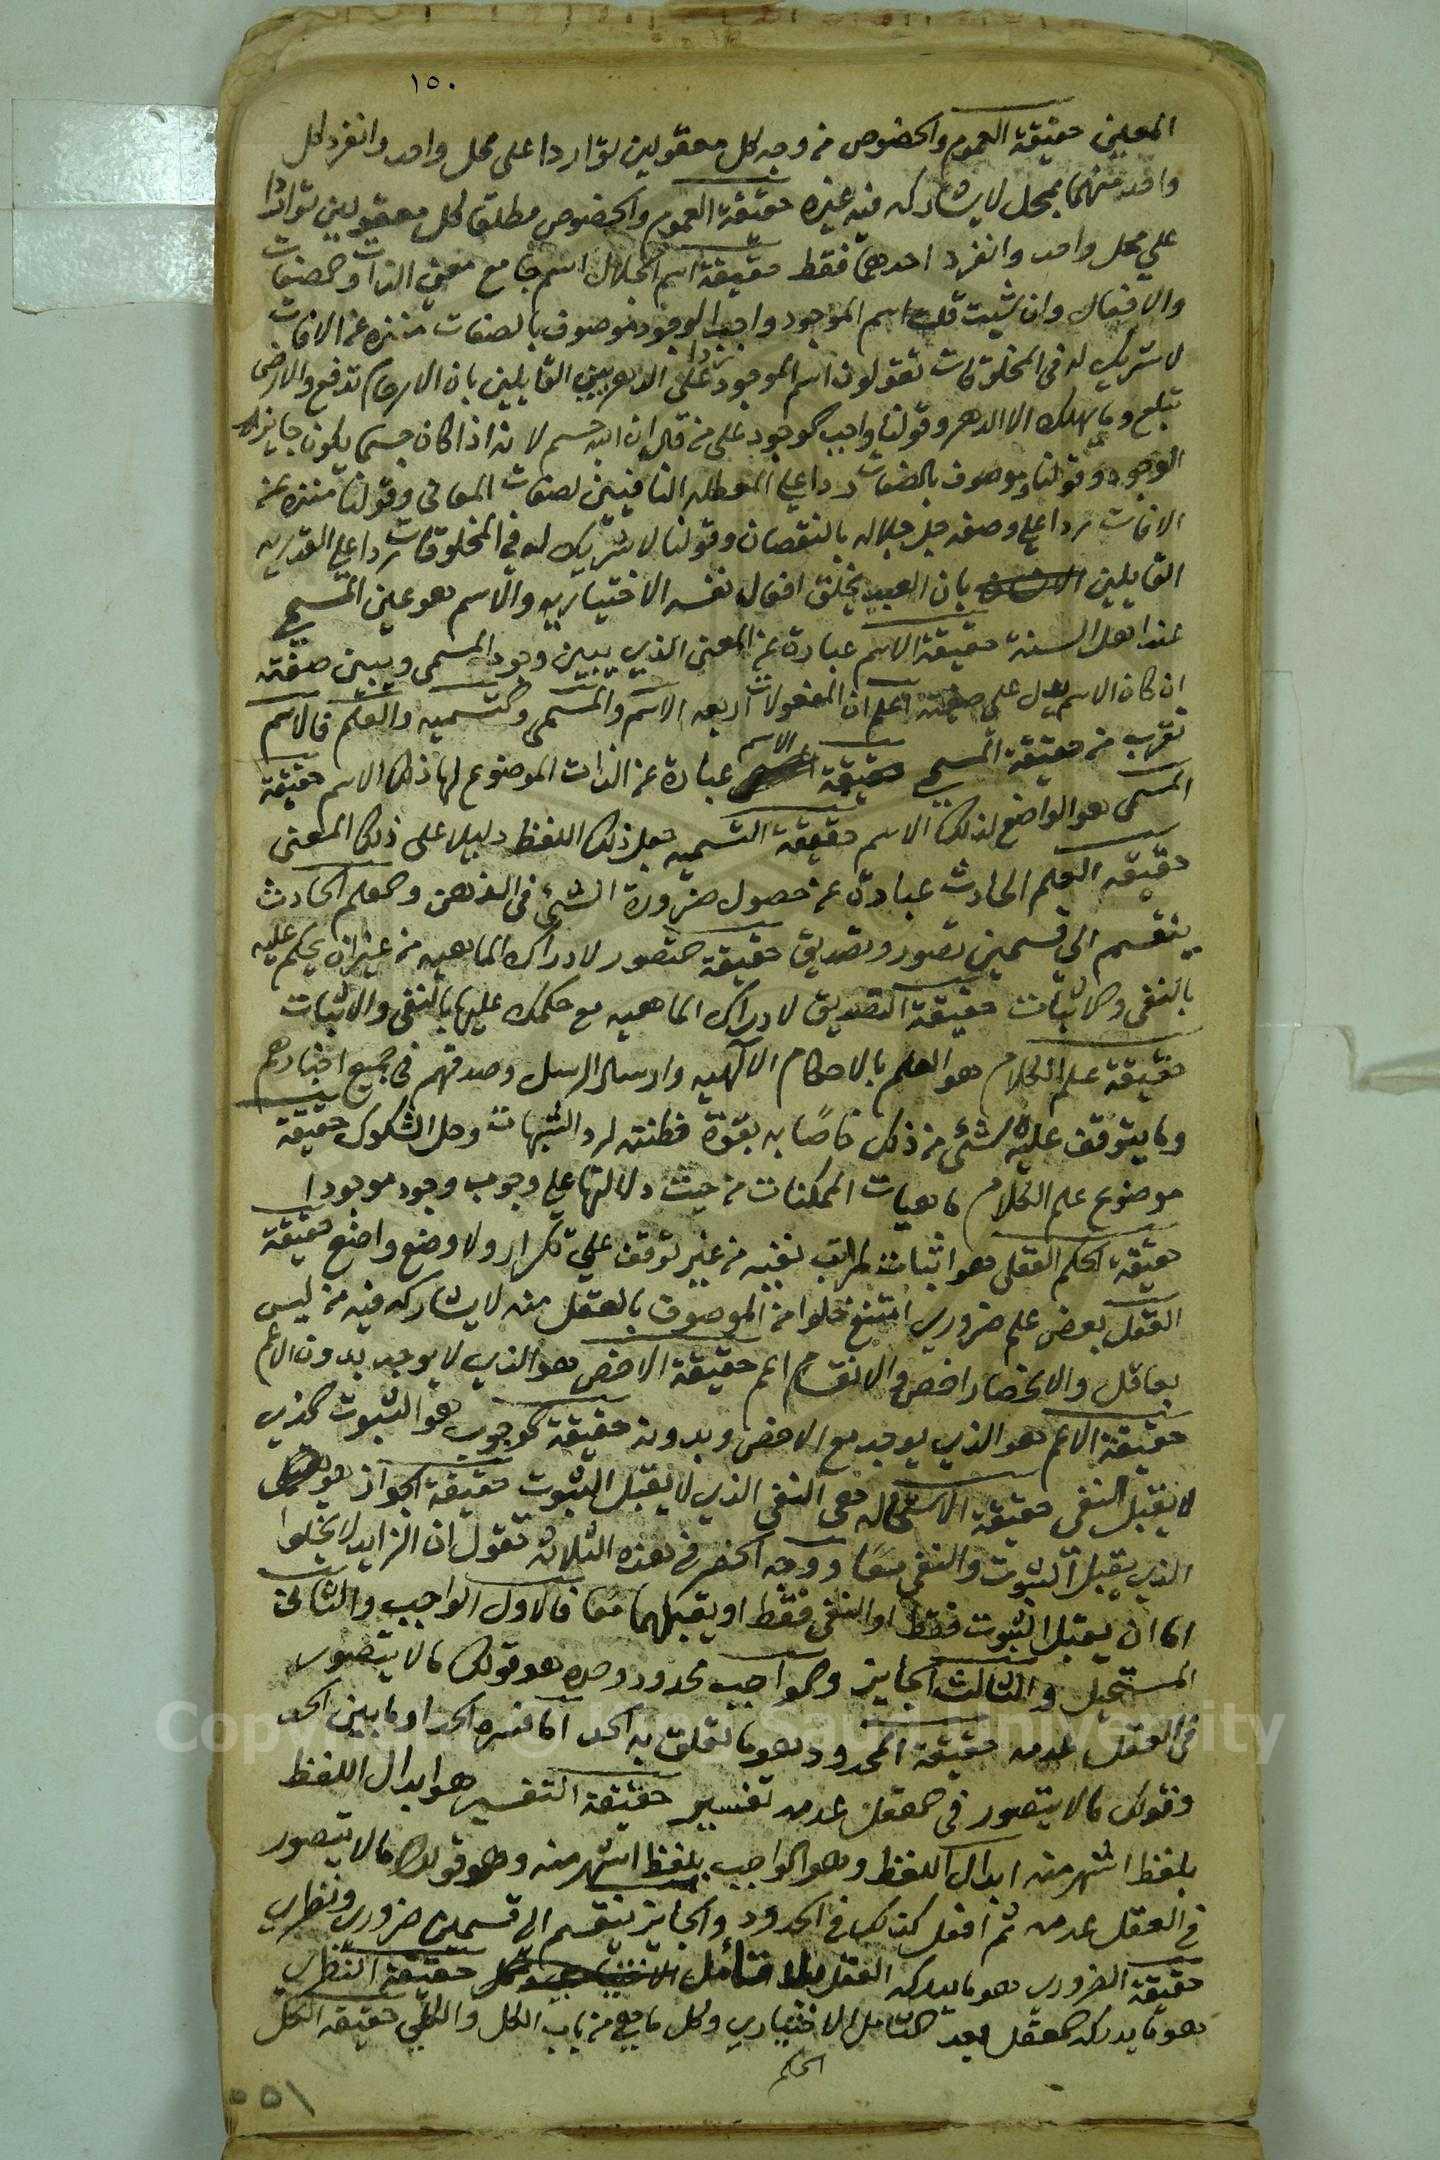 ١٥٠
المعلين حقيقة العموم والخصوص من وجه كل معقولين تواردا على محل واحد وانفرد كل
واحد منهما بمحل لا يشاركه فيه غيره حقيقة العموم والخصوص مطلقا كل معقولين تواردا
علي محل واحد وانفرد احدهما فقط حقيقة اسم الجلال اسم جامع معني الذات والصفات
والافعال وان شيت قلت اسم الموجود واجب الوجود موصوف بالصفات منزه عن الافات
لا شريك له في المخلوقات تقولون اسم الموجود ردا على الدهريين القايلين بان الارحام تدفع والارض
تبلع وما يهلك الا الدهر وقولنا واجب الوجود على من قال ان الله جسم لانه اذا كان جسما يكون جايز
الوجود وقولنا موصوف بالصفات ردا علي المعطله النافيين لصفات المعاني وقولنا منزه عن
الافات ردا علي وصفه جل جلاله بالنقصان وقولنا لا شريك له في المخلوقات ردا علي القدريه
القايلين بان العبد يخلق افعال نفسه الاختياريه والاسم هو عين المسمي
عند اهل السنة حقيقة الاسم عبارة عن المعنى الذي يبين وجود المسمى ويبين صفته
ان كان الاسم يدل على صفته اعلم ان المعقولات اربعه الاسم والمسمى والتسميه والعلم فالاسم
تقرب من حقيقة المسمي حقيقة الاسم عبارة عن الذات الموضوع لها ذلك الاسم حقيقة
المسمى هو الواضع لذلك الاسم حقيقة التسميه جعل ذلك اللفظ دليلا على ذلك المعنى
حقيقه العلم الحادث عبارة عن حصول ضرورة الشئ في الذهن والعلم الحادث
ينقسم الى قسمين تصور وتصديق حقيقة التصور لادراك الماهيه من غير ان يحكم عليه
بالنفى والاثبات حقيقة التصديق لادراك الماهيه مع حكمك عليها بالنفى والاثبات
حقيقة علم الكلام هو العلم بالاحكام الالهيه وارسال الرسل وصدقهم في جميع اخبارهم
وما يتوقف عليه الشئ من ذلك خاصًا به بقوة فطنته لرد الشبهات وحل الشكوك حقيقة
موضوع علم الكلام ماهيات الممكنات من حيث دلالتها على وجوب وجود موجودا
حقيقة الحكم العقلى هو اثبات امر او نفيه من غير توقف علي تكرار ولا وضع واضع حقيقة
العقل بعض علم ضروري امتنع خلوا من الموصوف بالعقل منه لا يشاركه فيه من ليس
بعاقل والانحصار اخص والانقسام اعم حقيقة الاخص هو الذي لا يوجد بدون الاعم
حقيقة الاعم هو الذي يوجد مع الاخص وبدونه حقيقة الوجوب هو الثبوت الذي
لا يقبل النفى حقيقة الاستحاله هى النفى الذي لا يقبل الثبوت حقيقة الجواز هو
الذي يقبل الثبوت والنفى معًا ووجه الحصر في هذه الثلاثه تقول ان الزايد لا يخلوا
اما ان يقبل الثبوت فقط او النفى فقط او يقبلهما معًا فالاول الواجب والثانى
المستحيل والثالث الجايز والواجب محدود وحده هو قولك ما لا يتصور
في العقل عدمه حقيقة المحدود هو ما تعلق به الحد اما فسره الحد او ما بين الحد
وقولك ما لا يتصور في العقل عدمه تفسير حقيقة التفسير هو ابدال اللفظ
بلفظ اشهر منه ابدال اللفظ وهو الواجب بلفظ اشهر منه وهو قولك ما لا يتصور
في العقل عدمه ثم افعل كذلك في الحدود والجايز ينقسم الى قسمين ضروري ونظري
حقيقة الضروري هو ما يدركه العقل بلا تأمل حقيقة النظري
هو ما يدركه العقل بعد التامل الاختياري وكل ما هو من باب الكل والكلي حقيقه الكل
الحكم
٥٥١
Copyright © King Saud University